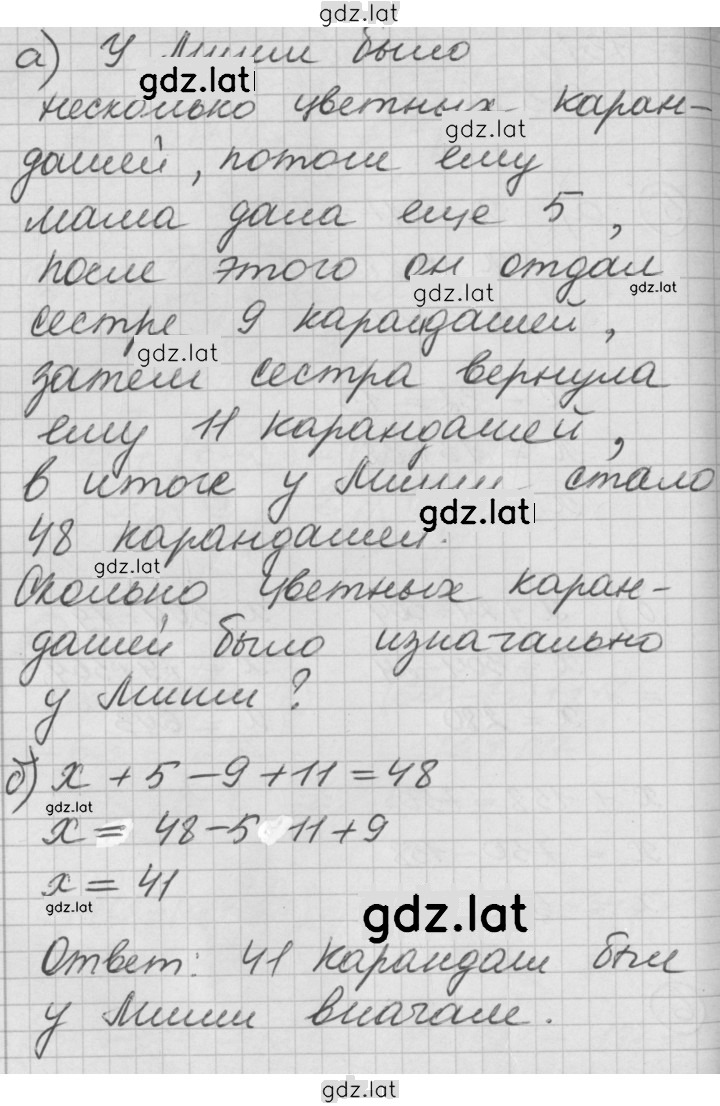 gdz.lat
а) У Миши было
gdz.lat
несколько цветных каран-
gdz.lat
дашей, потом ему
мама дала еще 5,
после этого он отдал
gdz.lat
gdz.lat
сестре 9 карандашей,
gdz.lat
затем сестра вернула
ему 11 карандашей,
в итоге у Миши стало
gdz.lat
48 карандашей.
gdz.lat
Сколько цветных каран-
дашей было изначально
у Миши?
б) x + 5 - 9 + 11 = 48
gdz.lat
x = 48 - 5 11 + 9
x = 41
gdz.lat
gdz.lat
Ответ: 41 карандаш был
у Миши вначале.
gdz.lat